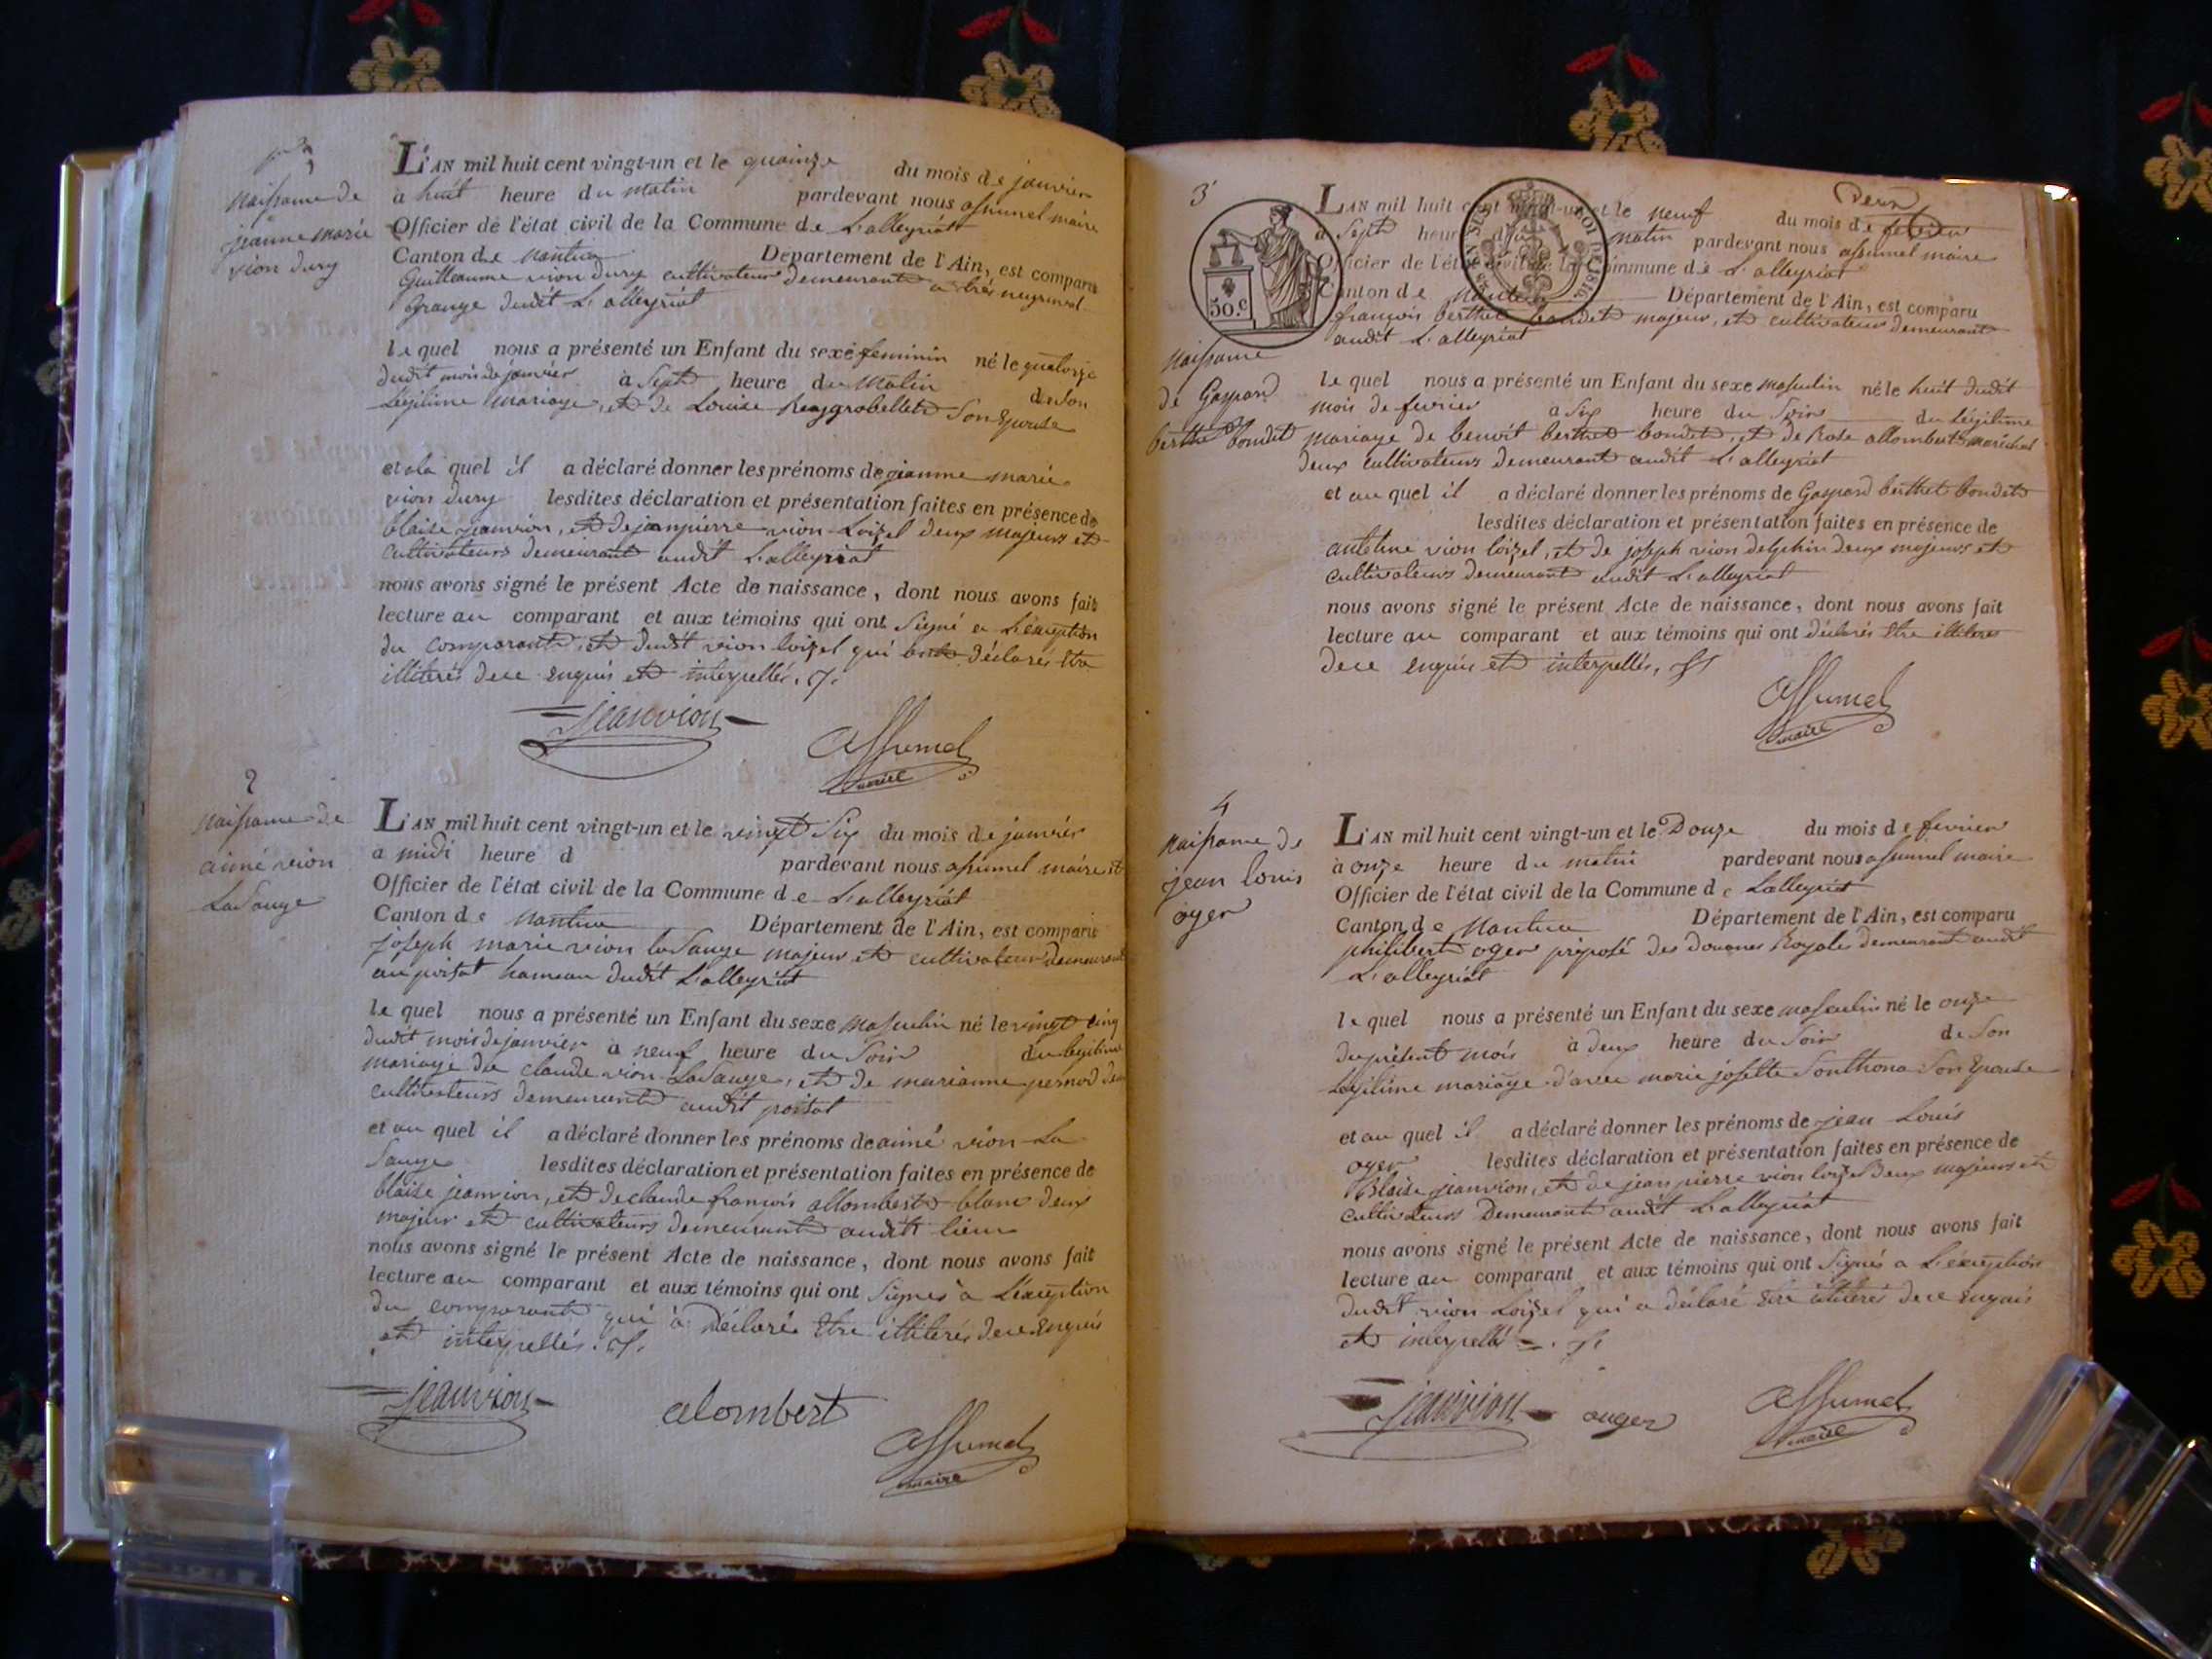 1
Naissance de
jeanne marie
vion dury
L'AN mil huit cent vingt-un et le quainze du mois de janvier
à huit heure du matin pardevant nous assumel maire
Officier de l'état civil de la Commune de L'alleyriat
Canton de Nantua Département de l'Ain, est comparu
Guillaume vion dury cultivateur demeurant a
Grange dudit L'alleyriat
le quel nous a présenté un Enfant du sexe feminin né le quatorze
dudit mois de janvier à Sept heure du Matin de Son
Légitime mariage, et de Louise Son Epouse
et a la quel il a déclaré donner les prénoms de jeanne marie
vion dury lesdites déclaration et présentation faites en présence de
blaise jeanvion, et de jeanpierre vion-Loizel deux majeurs et
cultivateurs demeurant audit L'alleyriat
nous avons signé le présent Acte de naissance, dont nous avons fait
lecture au comparant et aux témoins qui ont Signé a L'éxception
du comparant, et dudit vion loizel qui déclarés Etre
illiterés dece enquis et interpellés.
jeanvion
assumel
maire
2
Naissance de
aimé vion
La Sauge
L'AN mil huit cent vingt-un et le vingt Six du mois de janvier
a midi heure d pardevant nous assumel maire et
Officier de l'état civil de la Commune de L'alleyriat
Canton de Nantua Département de l'Ain, est comparu
joseph marie vion laSauge majeur et cultivateur demeurant
au poisat hameau dudit L'alleyriat
le quel nous a présenté un Enfant du sexe Masculin né le vingt cinq
dudit mois de janvier à neuf heure du Soir du legitime
mariage de claude vion LaSauge, et de marianne pernod deux
cultivateurs demeurant audit poisat
et au quel il a déclaré donner les prénoms de aimé vion La
Sauge lesdites déclaration et présentation faites en présence de
blaise jeanvion, et de claude françois allombert blanc deux
majeur et cultivateurs demeurant audit lieu
nous avons signé le présent Acte de naissance, dont nous avons fait
lecture au comparant et aux témoins qui ont Signés à L'éxception
du comparant qui à Déclaré Etre illiterés dece Enquis
et interpellés.
jeanvion
alombert
assumel
maire
3
50.c
Naissance
de Gaspard
berthet bondet
L'AN mil huit cent vingt-un et le neuf du mois de fevrier
à Sept heure du matin pardevant nous assumel maire
Officier de l'état civil de la Commune de L'alleyriat
Canton de Nantua Département de l'Ain, est comparu
françois berthet bondet majeur, et cultivateur demeurant
audit L'alleyriat
le quel nous a présenté un Enfant du sexe masculin né le huit dudit
mois de fevrier à Six heure du Soir du Légitime
mariage de benoit berthet bondet, et de Rose allombert maréchal
deux cultivateurs demeurant audit L'alleyriat
et au quel il a déclaré donner les prénoms de Gaspard berthet bondet
lesdites déclaration et présentation faites en présence de
antoine vion loizel, et de joseph vion delphin deux majeurs et
cultivateurs demeurant audit L'alleyriat
nous avons signé le présent Acte de naissance, dont nous avons fait
lecture au comparant et aux témoins qui ont déclarés Etre illiteres
dece enquis et interpellés,
assumel
maire
4
Naissance de
jean louis
oger
L'AN mil huit cent vingt-un et le Douze du mois de fevrier
à onze heure du matin pardevant nous assumel maire
Officier de l'état civil de la Commune de Lalleyriat
Canton de Nantua Département de l'Ain, est comparu
philibert oger préposé des Douanes Royales demeurant audit
L'alleyriat
le quel nous a présenté un Enfant du sexe masculin né le onze
du présent mois à deux heure du Soir de Son
Légitime mariage d'avec marie josette Sonthona Son Epouse
et au quel il a déclaré donner les prénoms de jean Louis
oger lesdites déclaration et présentation faites en présence de
Blaise jeanvion, et de jean pierre vion loizel Deux majeurs et
cultivateurs Demeurant audit L'alleyriat
nous avons signé le présent Acte de naissance, dont nous avons fait
lecture au comparant et aux témoins qui ont Signés a L'éxception
dudit vion Loizel qui a déclaré Etre illiterés dece Enquis
et interpellé
jeanvion
ouger
assumel
maire